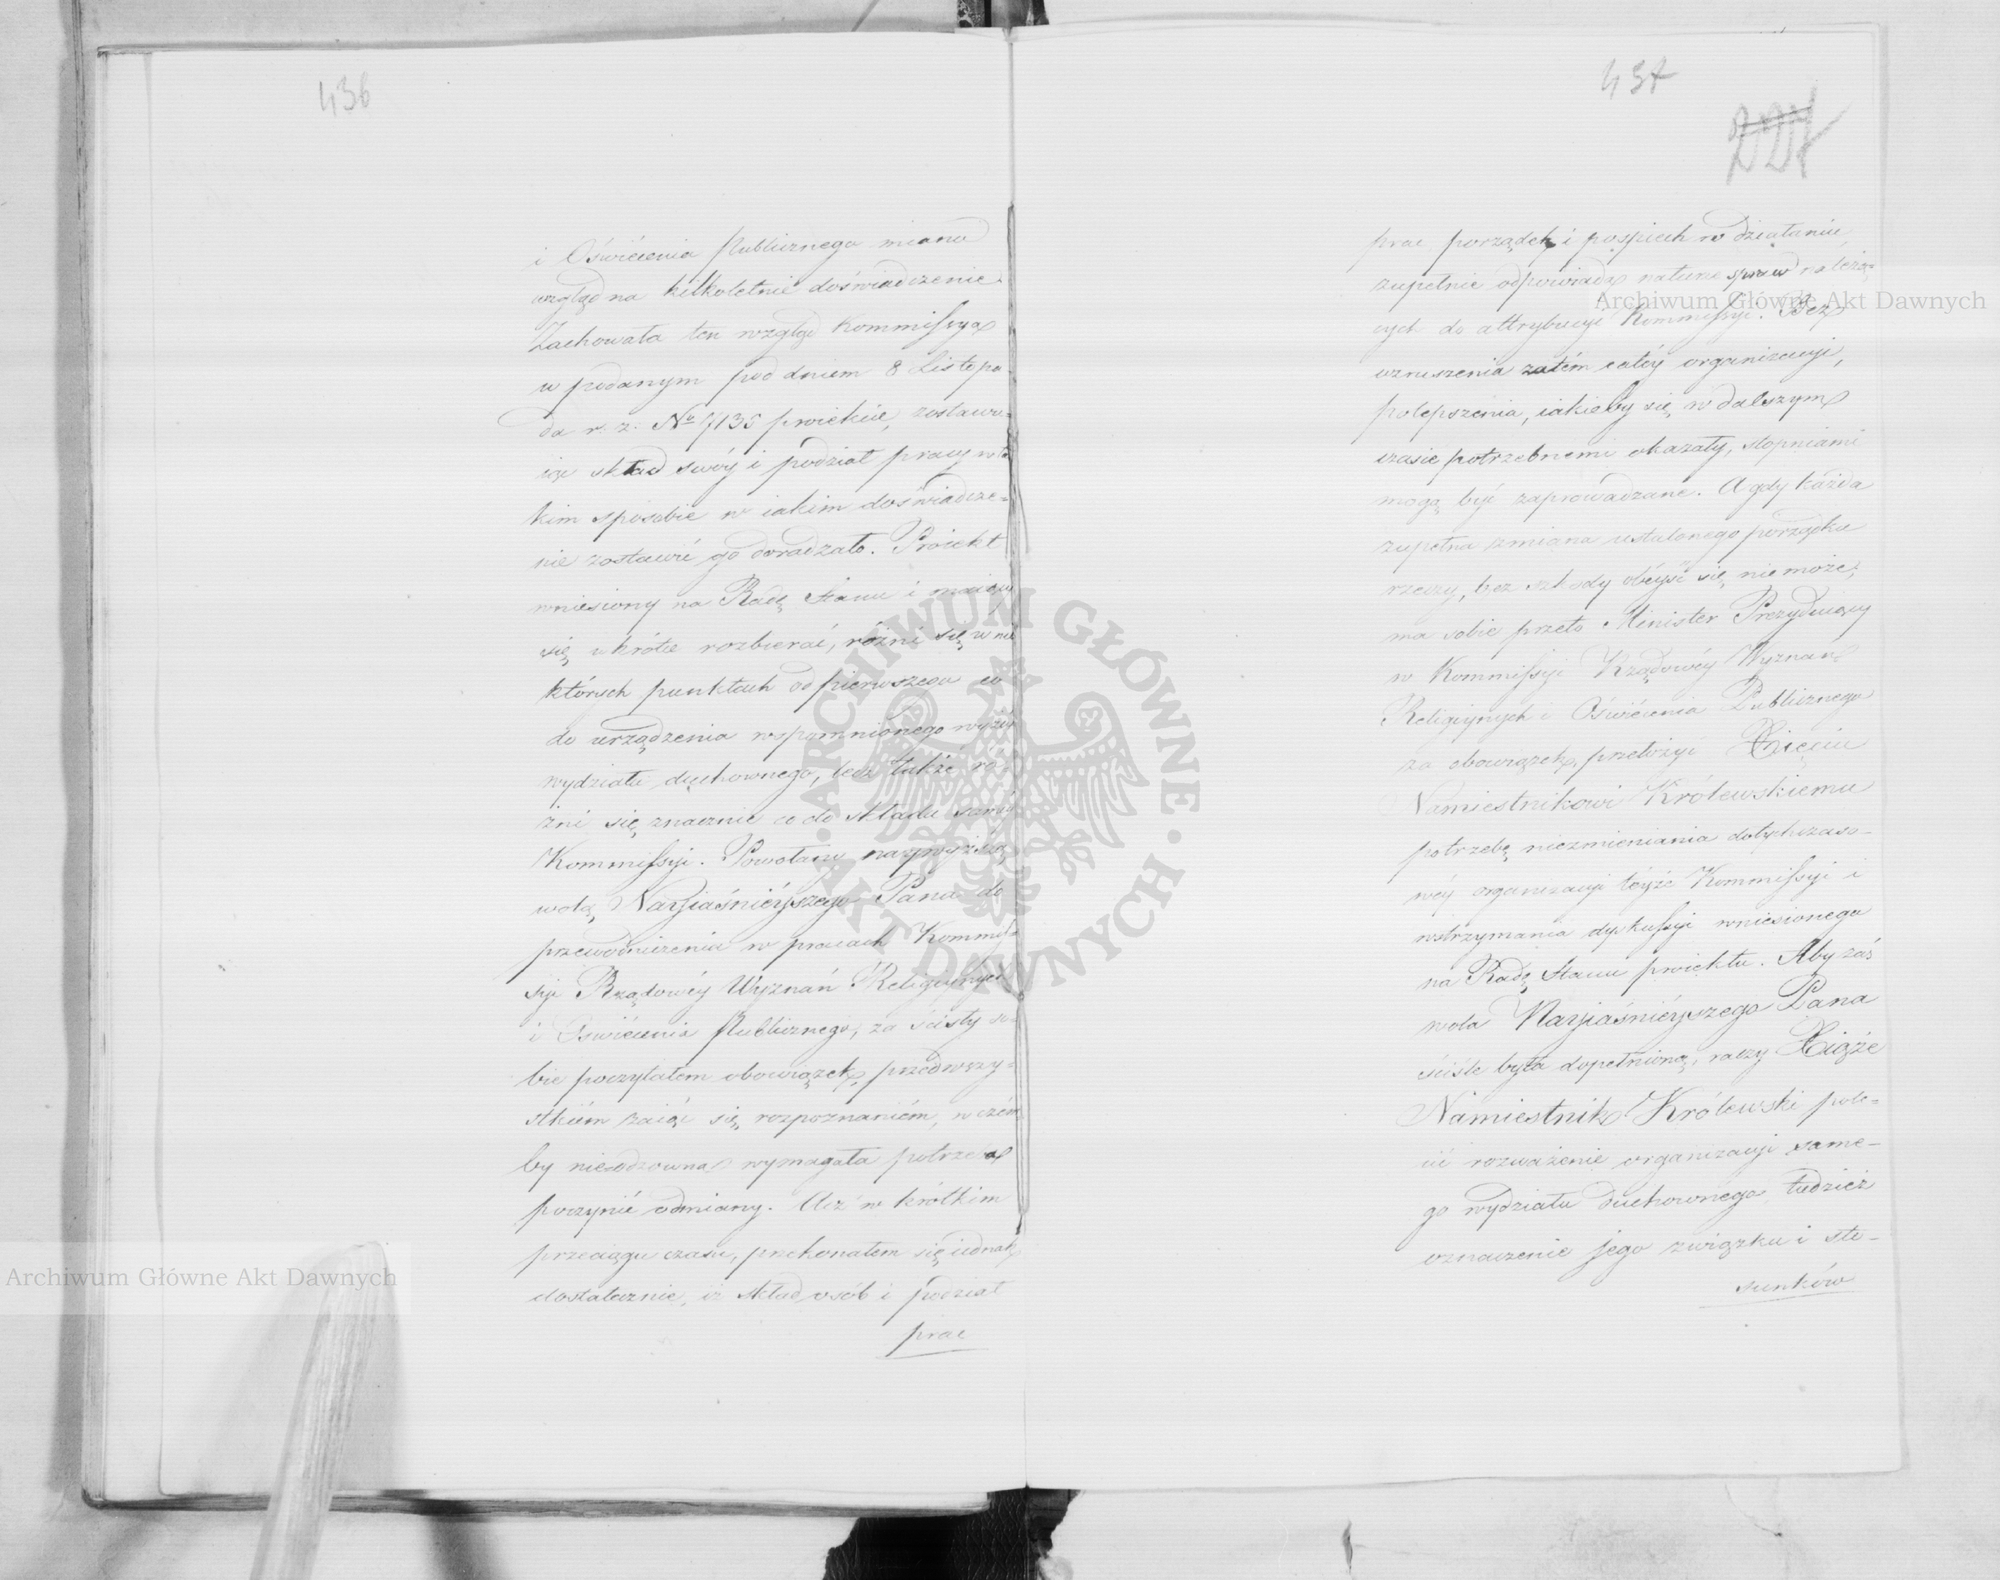 436
i Oświecenia Publicznego miano
wzgląd na kilkoletnie doświadczenie.
Zachowała ten wzgląd Kommissya
w podanym pod dniem 8 Listopa-
da r. z. Nr 7135 proiekcie, zostawu-
iąc skład swóy i podział pracy w ta
kim sposobie w iakim doświadcze-
nie zostawić go doradzało. Proiekt
wniesiony na Radę Stanu i maiący
się wkrótce rozbierać, różni się w nie
których punktach od pierwszego co
do urządzenia wspomnionego wyżéy
wydziału duchownego, lecz także ró-
żni się znacznie co do składu saméy
Kommissyi. Powołany naywyższą
wolą Nayjaśnieyszego Pana do
przewodniczenia w pracach Kommis-
syi Rządowéy Wyznań Religiynych
i Oświecenia Publicznego, za ścisły so-
bie poczytałem obowiązek, przedwszy-
stkiém zaiąć się rozpoznaniém, w czém
by nieodzowna wymagała potrzeba
poczynić odmiany. Acz w krótkim
przeciągu czasu, przekonałem się iednak
dostatecznie, iż skład osób i podział
prac
437
227
prac porządek i pośpiech w działaniu,
zupełnie odpowiada naturze spraw należą-
cych do attrybucyi Kommissyi. Bez
wzruszenia zatém całéy organizacyi,
polepszenia, iakieby się w dalszym
czasie potrzebnemi okazały, stopniami
mogą być zaprowadzane. A gdy każda
zupełna zmiana ustalonego porządku
rzeczy, bez szkody obeyść się nie może,
ma sobie przeto Minister Prezyduiący
w Kommissyi Rządowéy Wyznań
Religiynych i Oświecenia Publicznego
za obowiązek, przełożyć Xięciu
Namiestnikowi Królewskiemu
potrzebę niezmieniania dotychczaso-
wéy organizacyi téyże Kommissyi i
wstrzymania dyskussyi wniesionego
na Radę Stanu proiektu. Aby zaś
wola Nayjaśnieyszego Pana
ściśle była dopełnioną, raczy Xiąże
Namiestnik Królewski pole-
cić rozważenie organizacyi same-
go wydziału duchownego tudzież
oznaczenie jego związku i sto-
sunków
Archiwum Główne Akt Dawnych
Archiwum Główne Akt Dawnych
· ARCHIWUM GŁÓWNE · AKT DAWNYCH